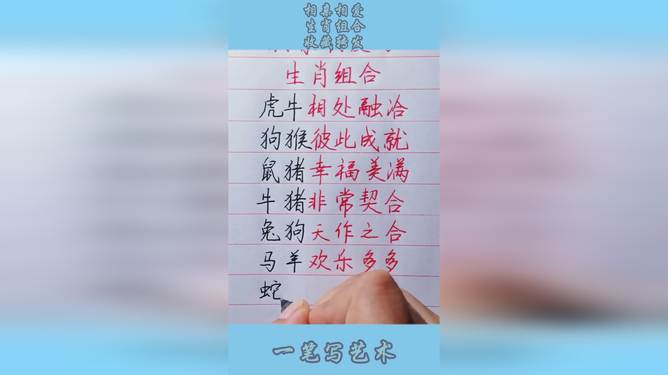 相亲相爱
生肖组合
收藏转发
生肖组合
虎牛相处融洽
狗猴彼此成就
鼠猪幸福美满
牛猪非常契合
兔狗天作之合
马羊欢乐多多
蛇
一笔写艺术